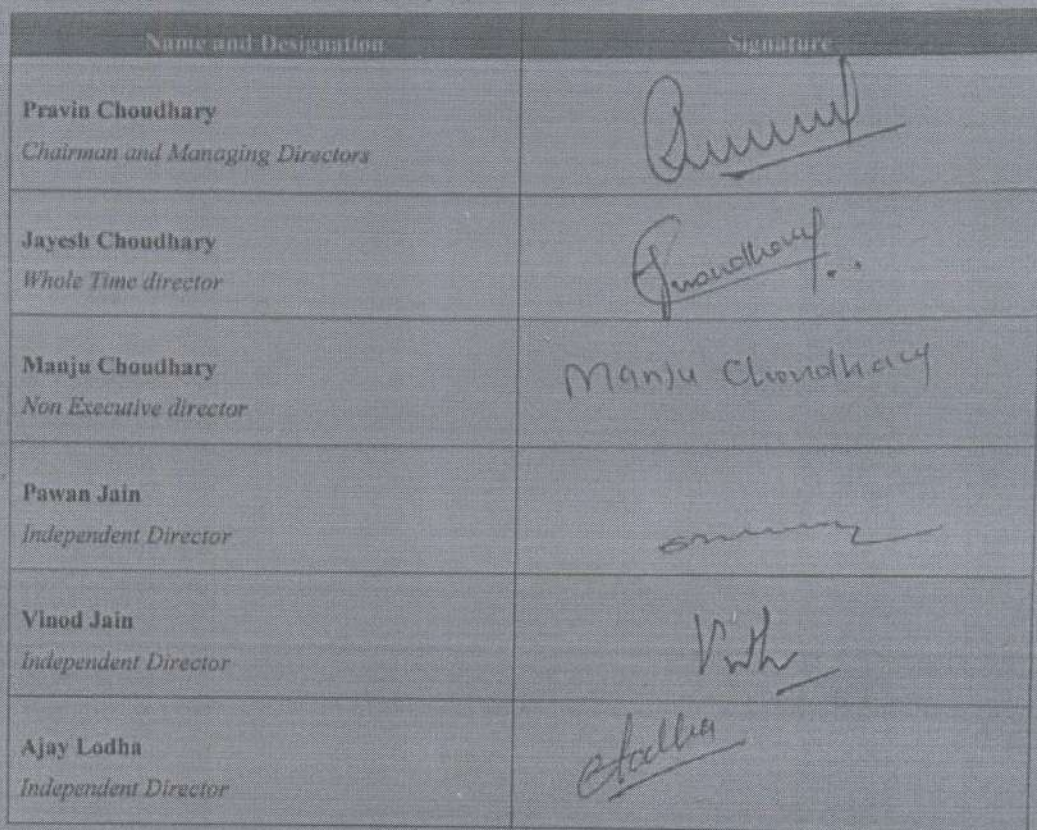 Name and Designation Signature
Pravin Choudhary
Chairman and Managing Directors
Jayesh Choudhary
Whole Time director
Manju Choudhary
Manju Choudhary
Non Executive director
Pawan Jain
Independent Director
Vinod Jain
Independent Director
Ajay Lodha
Independent Director